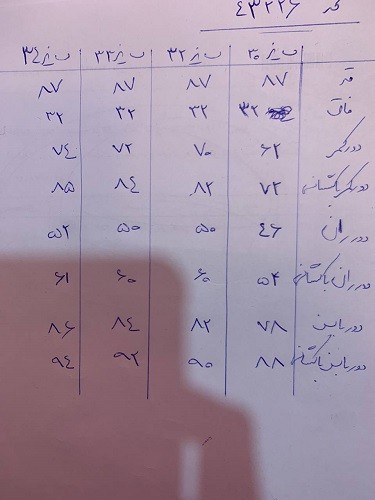 کد ۴۳۲۲۶
سایز ۳۰ سایز ۳۲ سایز ۳۳ سایز ۳۴
قد ۸۷ ۸۷ ۸۷ ۸۷
فاق ۳۲ ۳۲ ۳۲ ۳۲
دور کمر ۶۲ ۷۰ ۷۲ ۷۴
دور کمر با کشسانی ۷۲ ۸۲ ۸۴ ۸۵
دور ران ۴۶ ۵۰ ۵۰ ۵۲
دور ران با کشسانی ۵۴ ۶۰ ۶۰ ۶۱
دور باسن ۷۸ ۸۲ ۸۴ ۸۶
دور باسن با کشسانی ۸۸ ۹۰ ۹۲ ۹۴